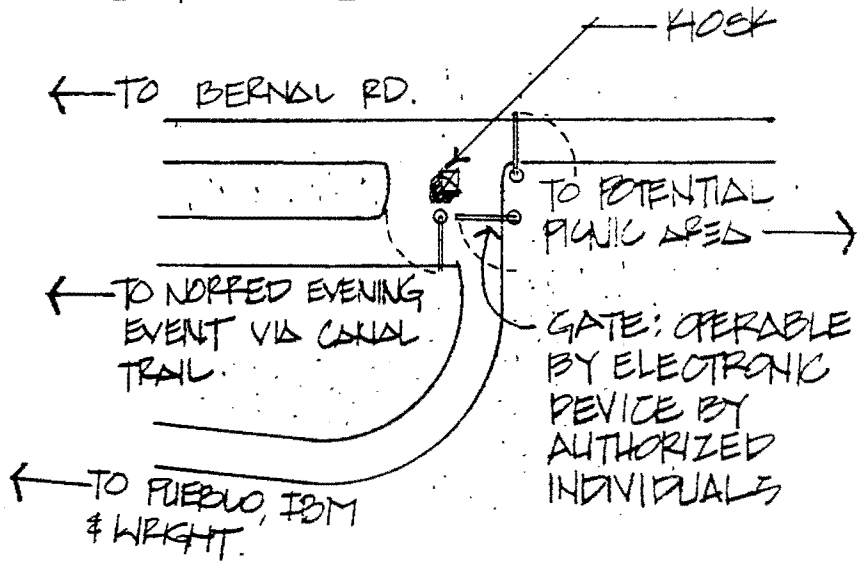 KIOSK
TO BERNAL RD.
TO POTENTIAL
PICNIC AREA
TO NORRED EVENING
EVENT VIA CANAL
TRAIL.
GATE: OPERABLE
BY ELECTRONIC
DEVICE BY
AUTHORIZED
INDIVIDUALS
TO PUEBLO, IBM
& WRIGHT.